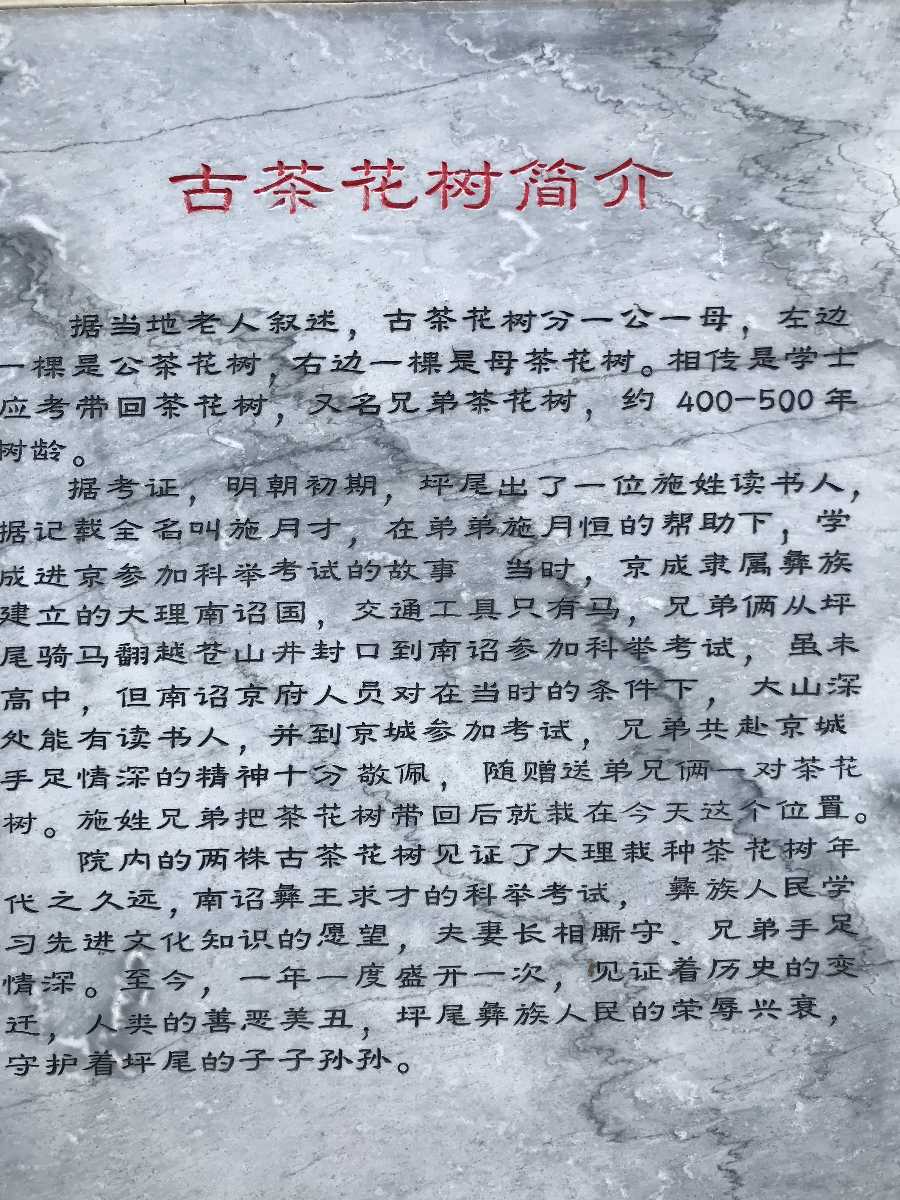 古茶花树简介
据当地老人叙述，古茶花树分一公一母，左边
一棵是公茶花树，右边一棵是母茶花树。相传是学士
应考带回茶花树，又名兄弟茶花树，约 400—500 年
树龄。
据考证，明朝初期，坪尾出了一位施姓读书人，
据记载全名叫施月才，在弟弟施月恒的帮助下，学
成进京参加科举考试的故事 当时，京成隶属彝族
建立的大理南诏国，交通工具只有马，兄弟俩从坪
尾骑马翻越苍山井封口到南诏参加科举考试，虽未
高中，但南诏京府人员对在当时的条件下，大山深
处能有读书人，并到京城参加考试，兄弟共赴京城
手足情深的精神十分敬佩，随赠送弟兄俩一对茶花
树。施姓兄弟把茶花树带回后就栽在今天这个位置。
院内的两株古茶花树见证了大理栽种茶花树年
代之久远，南诏彝王求才的科举考试，彝族人民学
习先进文化知识的愿望，夫妻长相厮守、兄弟手足
情深。至今，一年一度盛开一次，见证着历史的变
迁，人类的善恶美丑，坪尾彝族人民的荣辱兴衰，
守护着坪尾的子子孙孙。